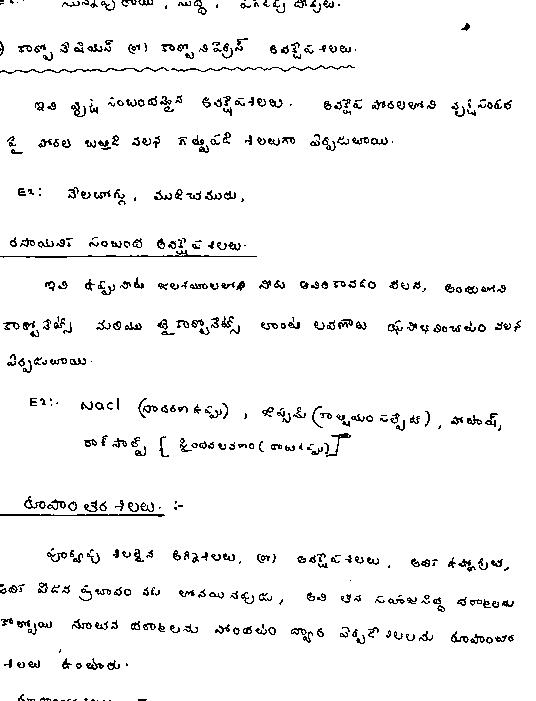 Ex: సున్నపు రాయి, సుద్ద,
) కార్బోనేషియస్ (లేక) కార్బోనిఫెరస్ అవక్షేప శిలలు.
ఇవి వృక్ష సంబంధమైన అవక్షేపశిలలు. అవక్షేప పొరలలోని వృక్షసంపద
పై పొరల ఒత్తిడి వలన గట్టిపడి శిలలుగా ఏర్పడుతాయి.
Ex: నేలబొగ్గు, ముడిచమురు,
రసాయనిక సంబంధ అవక్షేప శిలలు.
ఇవి ఉప్పు నీటి జలాశయాలలోని నీరు ఆవిరికావడం వలన, అందులోని
కార్బోనేట్స్ మరియు బైకార్బోనేట్స్ లాంటి లవణాలు వలన
ఏర్పడుతాయి.
Ex:- Nacl (సాధారణ ఉప్పు), జిప్సమ్ (కాల్షియం సల్ఫేట్), పొటాష్,
రాక్ సాల్ట్ [సైంధవలవణం (రాతిఉప్పు)]
రూపాంతర శిలలు. :-
శిలలైన అగ్నిశిలలు, (లే) అవక్షేపశిలలు, అధిక ఉష్ణోగ్రత,
అధిక పీడన ప్రభావం వలన లోనయినప్పుడు, అవి తమ సహజసిద్ధ ధర్మాలను
కోల్పోయి నూతన ధర్మాలను పొందటం ద్వారా ఏర్పడే శిలలను రూపాంతర
శిలలు అంటారు.